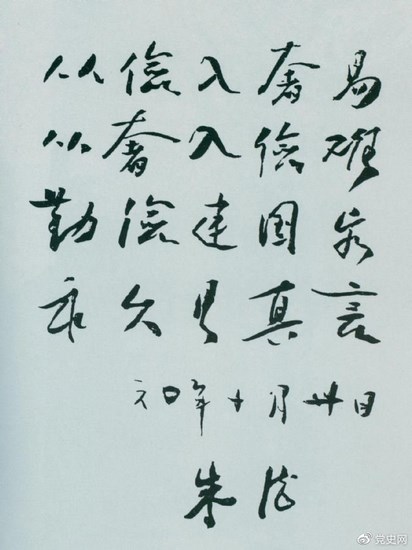 从儉入奢易
从奢入儉难
勤儉建国家
永久是真言
六〇年十月日
朱德
党史网